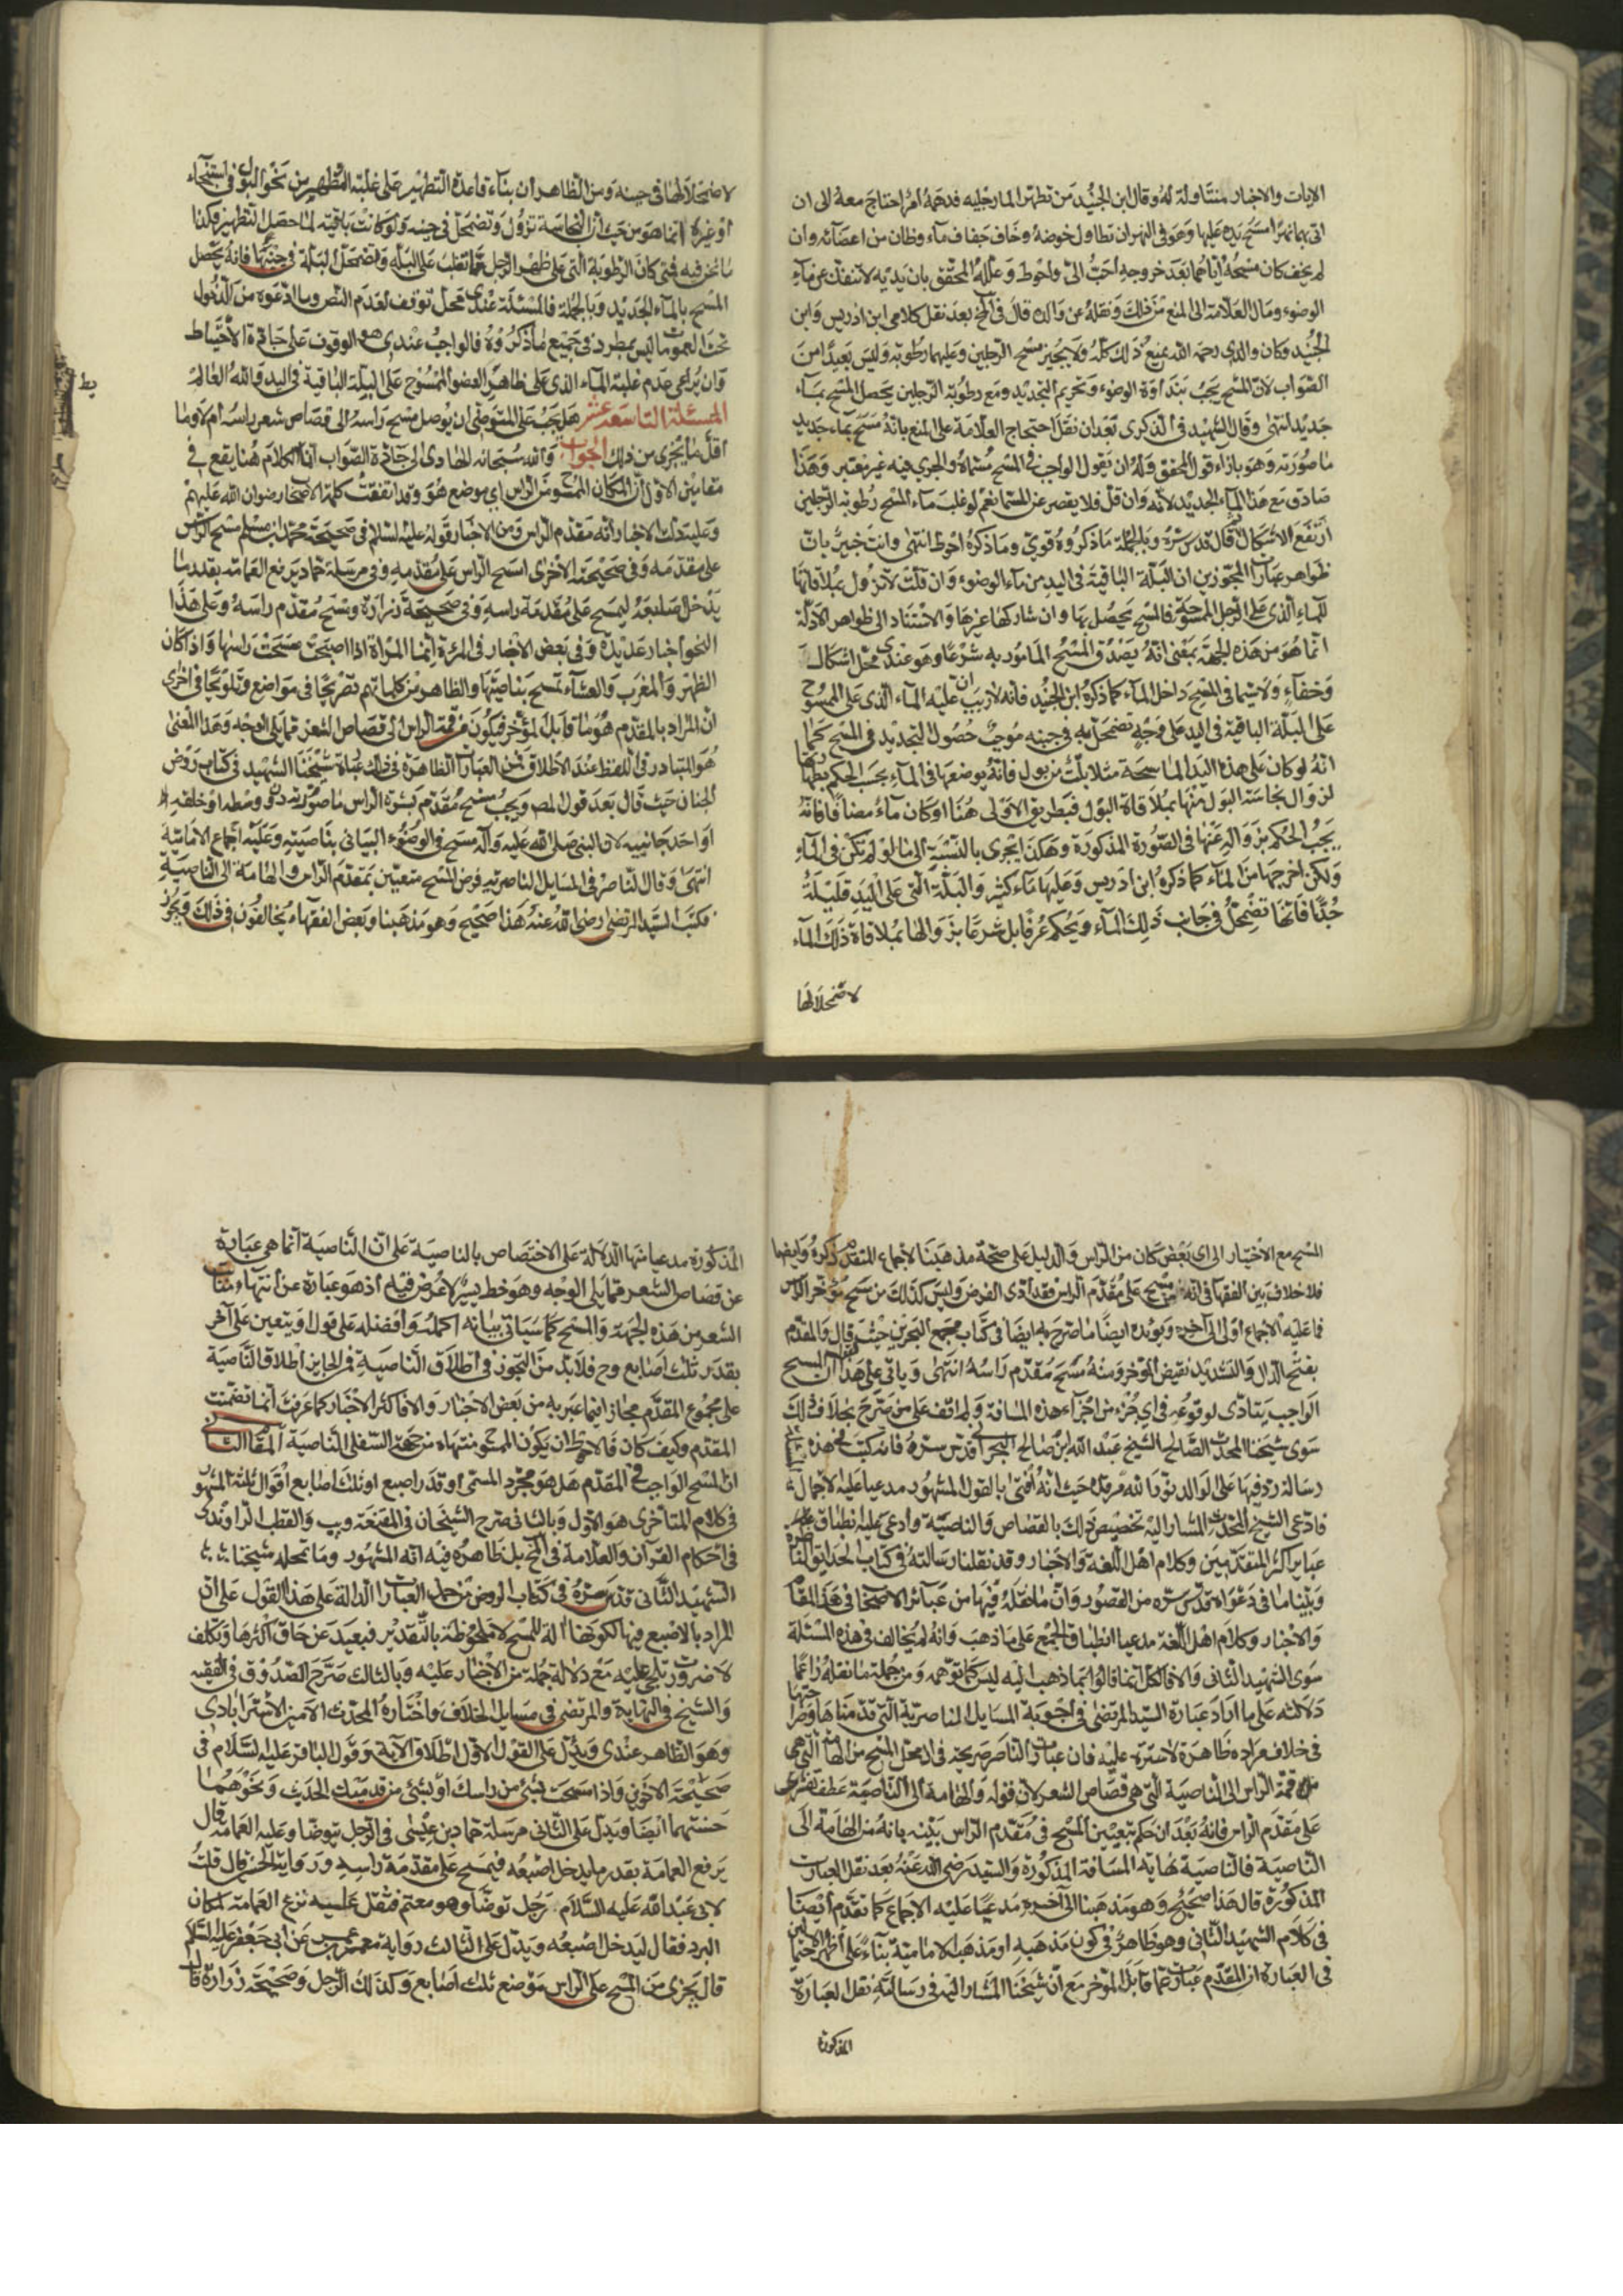 الايات والاخبار متناولة له وقال ابن الجنيد من تطهر الا رجليه فدهمه امر احتاج معه الى ان
اتى بهما نهرا مسح يده عليها وهو في النهر ان تطاول خوضه وخاف جفاف ماء وظان من اعضائه وان
لم يخف كان مسحه اياهما بعد خروجه احب الي واحوط وعلله المحقق بان يديه لا تنفك عن ماء
الوضوء ومال العلامة الى المنع من ذلك ونقله عن والده قال في المخ بعد نقل كلامي ابن ادريس وابن
الجنيد وكان والدي رحمه الله يمنع ذلك كله ولا يجيز مسح الرجلين وعليهما رطوبة وليس بعيدا من
الصواب لان المسح يجب بنداوة الوضوء وتحريم التجديد ومع رطوبة الرجلين يحصل المسح بماء
جديد انتهى وقال الشهيد في الذكرى بعد ان نقل احتجاج العلامة على المنع بانه مسح بماء جديد
ما صورته وهو بازاء قول المحقق وله ان يقول الواجب في المسح مسماه والجري فيه غير معتبر وهذا
صادق مع هذا الماء الجديد لانه وان قل فلا يقصر عن المسمى نعم لو غلب ماء المسح رطوبة الرجلين
ارتفع الاشكال قال قدس سره وبالجملة ما ذكروه قوي وما ذكره احوط انتهى وانت خبير بان
ظواهر عبارات المجوزين ان البلة الباقية في اليد من ماء الوضوء وان قلت لا تزول بملاقاتها
للماء الذي على الرجل الممسوحة فالمسح يحصل بها وان شاركها غيرها والاستناد الى ظواهر الادلة
انما هو من هذه الجهة بمعنى انه يصدق المسح المامور به شرعا وهو عندي محل اشكال
وخفاء ولا سيما في المسح داخل الماء كما ذكره ابن الجنيد فانه لا ريب ان غلبة الماء الذي على الممسوح
على البلة الباقية في اليد على وجه تضمحل به في جنبه موجب حصول التجديد في المسح كما
انه لو كان على هذه اليد الماسحة مثلا بلة من بول فانه بوضعها في الماء يجب الحكم بطهارتها
لزوال نجاسة البول منها بملاقاة البول فبطريق الاولى هنا لو كان ماء مضافا فانه
يجب الحكم بزواله عنها في الصورة المذكورة وهكذا يجري بالنسبة الى ما لو لم تكن في الماء
ولكن اخرجها من الماء كما ذكره ابن ادريس وعليها ماء كثير والبلة التي على اليد قليلة
جدا فانها تضمحل في جانب ذلك الماء ويحكم عرفا بل شرعا بزوالها بملاقاة ذلك الماء
لاضمحلالها
لاضمحلالها في جنبه ومن الظاهر ان بناء قاعدة التطهير على غلبة المطهر من نحو البول في استنجاء
او غيره انما هو من حيث ان النجاسة تزول وتضمحل في جنبه ولو كانت باقية لما حصل التطهير فكذا
ما نحن فيه فمتى كان الرطوبة التي على ظهر الرجل مما تغلب على البلة وتضمحل البلة في جنبها فانه يحصل
المسح بالماء الجديد وبالجملة فالمسئلة عندي محل توقف لعدم النص وما ادعوه من الدخول
تحت العمومات ليس بمطرد في جميع ما ذكروه فالواجب عندي هو الوقوف على جادة الاحتياط
وان يراعى عدم غلبة الماء الذي على ظاهر العضو الممسوح على البلة الباقية في اليد والله العالم
يط
المسئلة التاسعة عشر هل يجب على المتوضئ ان يوصل مسح راسه الى قصاص شعر راسه ام لا وما
اقل ما يجزي من ذلك الجواب والله سبحانه الهادي الى جادة الصواب ان الكلام هنا يقع في
مقامين الاول ان المكان الممسوح من الراس اي موضع هو وقد اتفقت كلمة الاصحاب رضوان الله عليهم
وعليه دلت الاخبار انه مقدم الراس ومن الاخبار قوله عليه السلم في صحيحة محمد بن مسلم مسح الراس
على مقدمه وفي صحيحته الاخرى امسح الراس على مقدمه وفي مرسلة حماد يرفع العمامة بقدر ما
يدخل اصبعه ليمسح على مقدمة راسه وفي صحيحة زرارة وتمسح مقدم راسه وعلى هذا
النحو اخبار عديدة وفي بعض الاخبار في المرئة انما المراة اذا اصبحت مسحت راسها واذا كان
الظهر والمغرب والعشاء تمسح بناصيتها والظاهر من كلماتهم تصريحا في مواضع وتلويحا في اخرى
ان المراد بالمقدم هو ما قابل المؤخر فيكون من قمة الراس الى قصاص الشعر مما يلي الوجه وهذا المعنى
هو المتبادر في اللفظ عند الاطلاق فمن العبارات الظاهرة في ذلك عبارة شيخنا الشهيد في كتاب روض
الجنان حيث قال بعد قول المص ويجب مسح مقدم بشرة الراس ما صورته دون وسطه او خلفه
او احد جانبيه لان النبي صلى الله عليه وآله مسح في الوضوء البياني بناصيته وعليه اجماع الامامية
انتهى وقال الناصر في المسايل الناصرية فرض المسح متعين بمقدم الراس والهامة الى الناصية
فكتب السيد المرتضى رضى الله عنه هذا صحيح وهو مذهبنا وبعض الفقهاء يخالفون في ذلك ويجوز
المسح مع الاختيار الى اي بعض كان من الراس والدليل على صحة مذهبنا الاجماع المتقدم ذكره وايضا
فلا خلاف بين الفقها في انه من مسح على مقدم الراس فقد ادى الفرض وليس كذلك من مسح مؤخر الراس
فما عليه الاجماع اولى الى آخره ويؤيده ايضا ما صرح به ايضا في كتاب مجمع البحرين حيث قال والمقدم
بفتح الدال والتشديد نقيض المؤخر ومنه مسح مقدم راسه انتهى وياتي على هذا ان المسح
الواجب يتادى لوقوعه في اي جزء من اجزاء هذه المسافة ولم اقف على من صرح بخلاف ذلك
سوى شيخنا المحدث الصالح الشيخ عبد الله بن صالح البحراني قدس سره فانه كتب في هذه
رسالة رد فيها على الوالد نور الله مرقده حيث انه افتى بالقول المشهور مدعيا عليه الاجمال
فادعى الشيخ المحدث المشار اليه تخصيص ذلك بالقصاص والناصية وادعى عليه انطباق
عباير اكثر المتقدمين وكلام اهل اللغة والاخبار وقد نقلنا رسالته في كتاب الحدايق الناضرة
وبينا ما في دعواه قدس سره من القصور وان ما نقله فيها من عبائر الاصحاب في هذا المقام
والاخبار وكلام اهل اللغة مدعيا انطباق الجميع على ما ذهب وانه لم يخالف في هذه المسئلة
سوى الشهيد الثاني والا فالكل انما قالوا بما ذهب اليه ليس كما توهمه ومن جملة ما نقله زاعما
دلالته على ما اراد عبارة السيد المرتضى في اجوبة المسايل الناصرية التي قدمناها وصراحتها
في خلاف مراده ظاهرة لا سترة عليه فان عبارة الناصر صريحة في ان محل المسح من الهامة التي هي
قمة الراس الى الناصية التي هي قصاص الشعر لان قوله والهامة الى الناصية عطف تفسيري
على مقدم الراس فانه بعد ان حكم بتعيين المسح في مقدم الراس بينه بانه من الهامة الى
الناصية فالناصية نهاية المسافة المذكورة والسيد رضى الله عنه بعد نقل العبارت
المذكورة قال هذا صحيح وهو مذهبنا الى آخره مدعيا عليه الاجماع كما تقدم ايضا
في كلام الشهيد الثاني وهو ظاهر في كون مذهبه او مذهب الامامية بناء على اظهر الاحتمالين
في العبارة ان المقدم عبارة عما قابل المؤخر مع ان شيخنا المشار اليه في رسالته نقل العبارة
المذكورة
المذكورة مدعيا منها الدلالة على الاختصاص بالناصية على ان الناصية انما هي عبارة
عن قصاص الشعر مما يلي الوجه وهو خط يسير لا عرض فيه اذ هو عبارة عن انتهاء منابت
الشعر من هذه الجهة والمسح كما سياتي بيانه اكمله وافضله على قول ويتعين على آخر
بقدر ثلث اصابع وح فلا بد من التجوز في اطلاق الناصية فمن الجايز اطلاق الناصية
على مجموع المقدم مجازا فيما عبر به من بعض الاخبار والا فاكثر الاخبار كما عرفت انما تضمنت
المقدم وكيف كان فالاحوط ان يكون المسح منتهاه من جهة السفلى الناصية المقام الثاني
ان المسح الواجب في المقدم هل هو مجرد المسمى او قدر اصبع او ثلث اصابع اقوال ثلثة المشهور
في كلام المتأخرى هو الاول وبالثاني صرح الشيخان في المقنعة ويب والقطب الراوندي
في احكام القرآن والعلامة في المخ بل ظاهره فيه انه المشهور وما تمحله شيخنا
الشهيد الثاني قدس سره في كتاب الروض من حمل العبارات الدالة على هذا القول على ان
المراد بالاصبع فيها لكونها الة للمسح لا ملحوظة بالتقدير فبعيد عن حاق اكثرها وتكلف
لا ضرورت تلجئ عليه مع دلالة جملة من الاخبار عليه وبالثالث صرح الصدوق في الفقيه
والشيخ في النهاية والمرتضى في مسايل الخلاف واختاره المحدث الامين الاسترابادي
وهو الظاهر عندي ويدل على القول الاول اطلاق الآية وقول الباقر عليه السلام في
صحيحة الاخوين واذا مسحت بشئ من راسك او بشئ من قدميك الحديث ونحوهما
حسنتهما ايضا ويدل على الثاني مرسلة حماد بن عيسى في الرجل يتوضا وعليه العمامة قال
يرفع العمامة بقدر ما يدخل اصبعه فيمسح على مقدمة راسه ورواية الحسين قال قلت
لابي عبد الله عليه السلام رجل توضا وهو معتم فثقل عليه نزع العمامة لمكان
البرد فقال ليدخل اصبعه ويدل على الثالث رواية معمر بن عمر عن ابي جعفر عليه السلم
قال يجزي من المسح على الراس موضع ثلث اصابع وكذلك الرجل وصحيحة زرارة قال